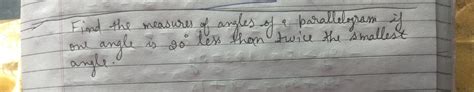 Find the measures of angles of a parallelogram if
one angle is 20° less than twice the smallest
angle.